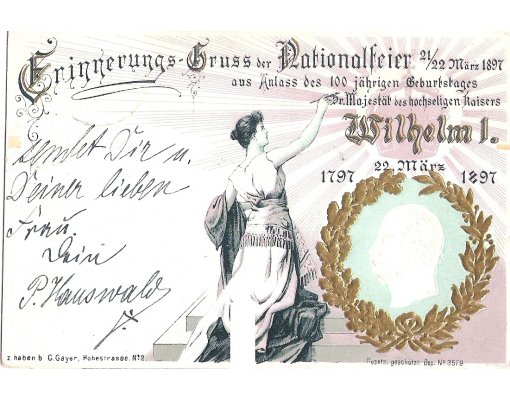 Erinnerungs-Gruss der Nationalfeier 21/22 März 1897
aus Anlass des 100 jährigen Geburtstages
Sr. Majestät des hochseligen Kaisers
Wilhelm I.
22. März
1797 1897
sendet Dir u.
Deiner lieben
Frau.
Dein
P. Hauswald
z. haben b. C. Gayer, Hohestrasse. No 2.
Gesetzl. geschützt. Des. No 3579